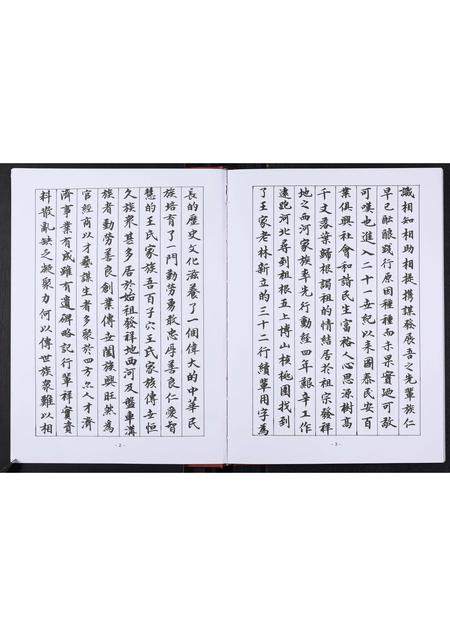 長的歷史文化滋養了一個偉大的中華民
族培育了一門勤勞勇敢忠厚善良仁愛智
慧的王氏家族吾百子穴王氏家族傳世恒
久族衆甚多居於始祖發祥地西河及盤車溝
族者勤勞善良創業傳世闔族興旺然為
官經商以才藝謀生者多聚於四方亦人才濟
濟事業有成雖有遺碑略記行輩祥實資
料散亂缺乏凝聚力何以傳世族衆難以相
- 2 -
識相知相助相提携謀發展吾之先輩族仁
早已酝釀践行原因種種而未果實可敬
可嘆也進入二十一世紀以来國泰民安百
業俱興社會和諧民生富裕人心思源樹高
千丈落葉歸根謁祖的情结居於祖宗發祥
地之西河家族率先行動經四年艱辛工作
遠跑河北尋到祖根五上博山核桃園找到
了王家老林新立的三十二行續輩用字為
- 3 -